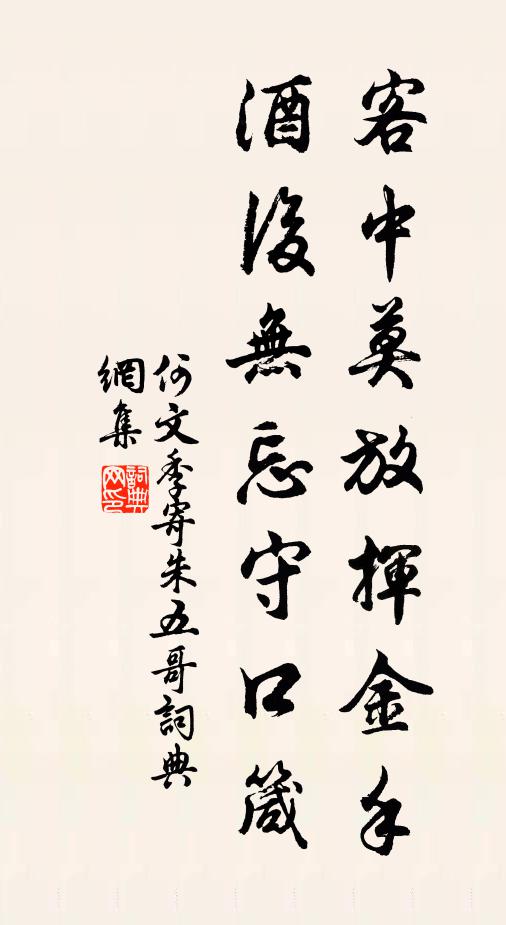 客中莫放揮金手
酒後無忘守口箴
何文季寄朱五哥詞典
網集
詞典網印